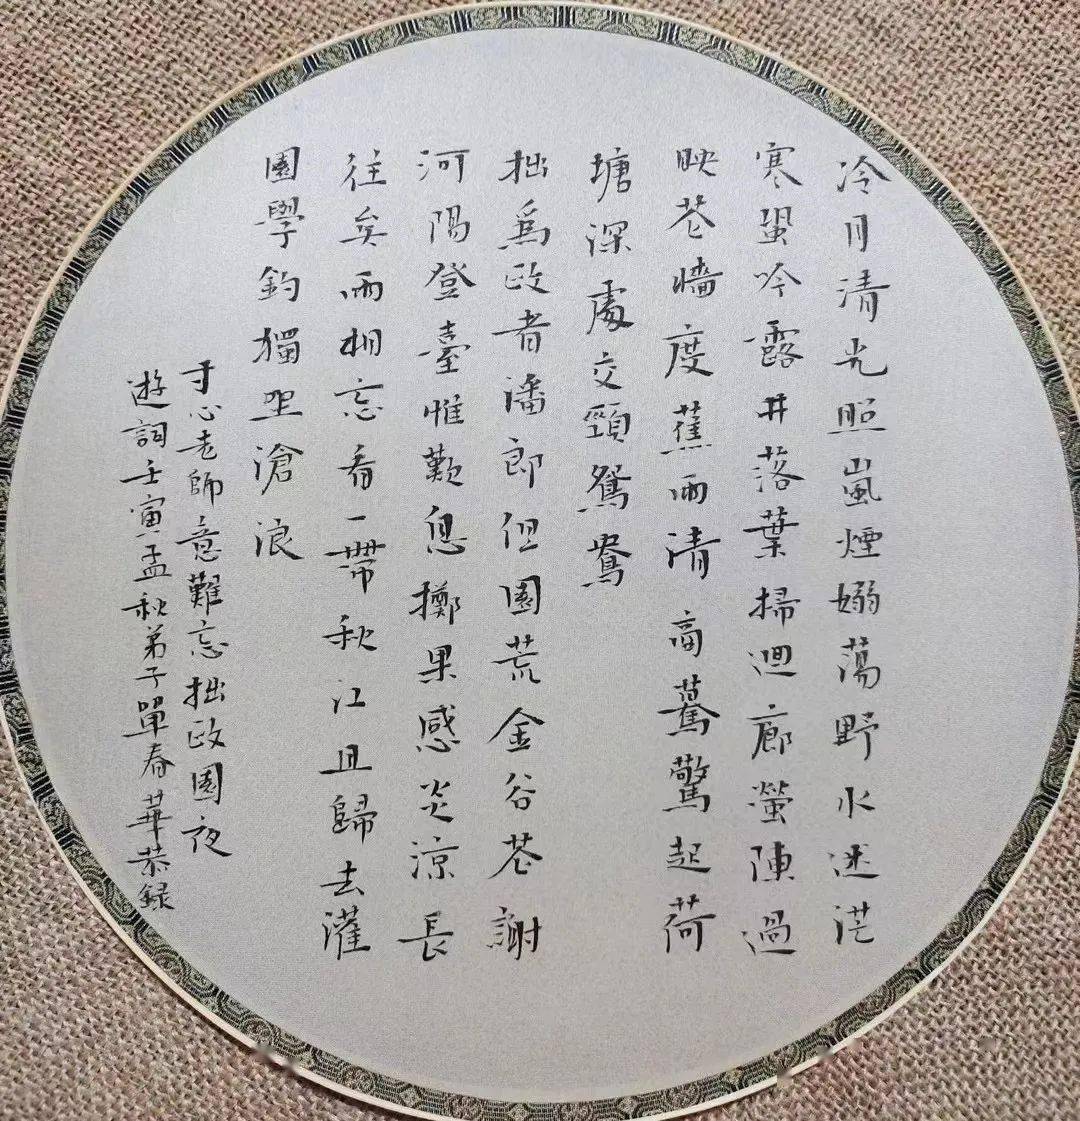 冷月清光照嵐煙嫋蕩野水迷茫
寒蛩吟露井落葉掃迴廊螢陣過
映花牆度蕉雨清商驀驚起荷
塘深處交頸鴛鴦
拙爲政者潘郎但園荒金谷花謝
河陽登臺惟歎息擲果感炎涼長
往矣兩相忘看一帶秋江且歸去灌
園學釣獨望滄浪
于心老師意難忘拙政園夜
遊詞壬寅孟秋弟子單春華恭録